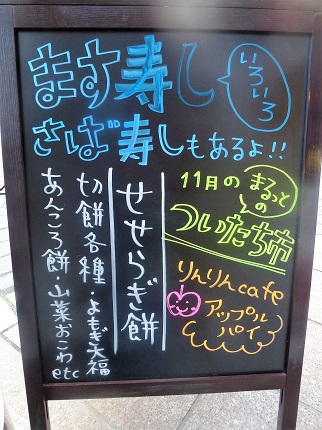 ます寿し
いろいろ
さば寿しもあるよ!!
11月の
まるっとの
ついたち市
りんりんcafe
アップルパイ
せせらぎ餅
切餅各種・よもぎ大福
あんころ餅 山菜おこわ etc